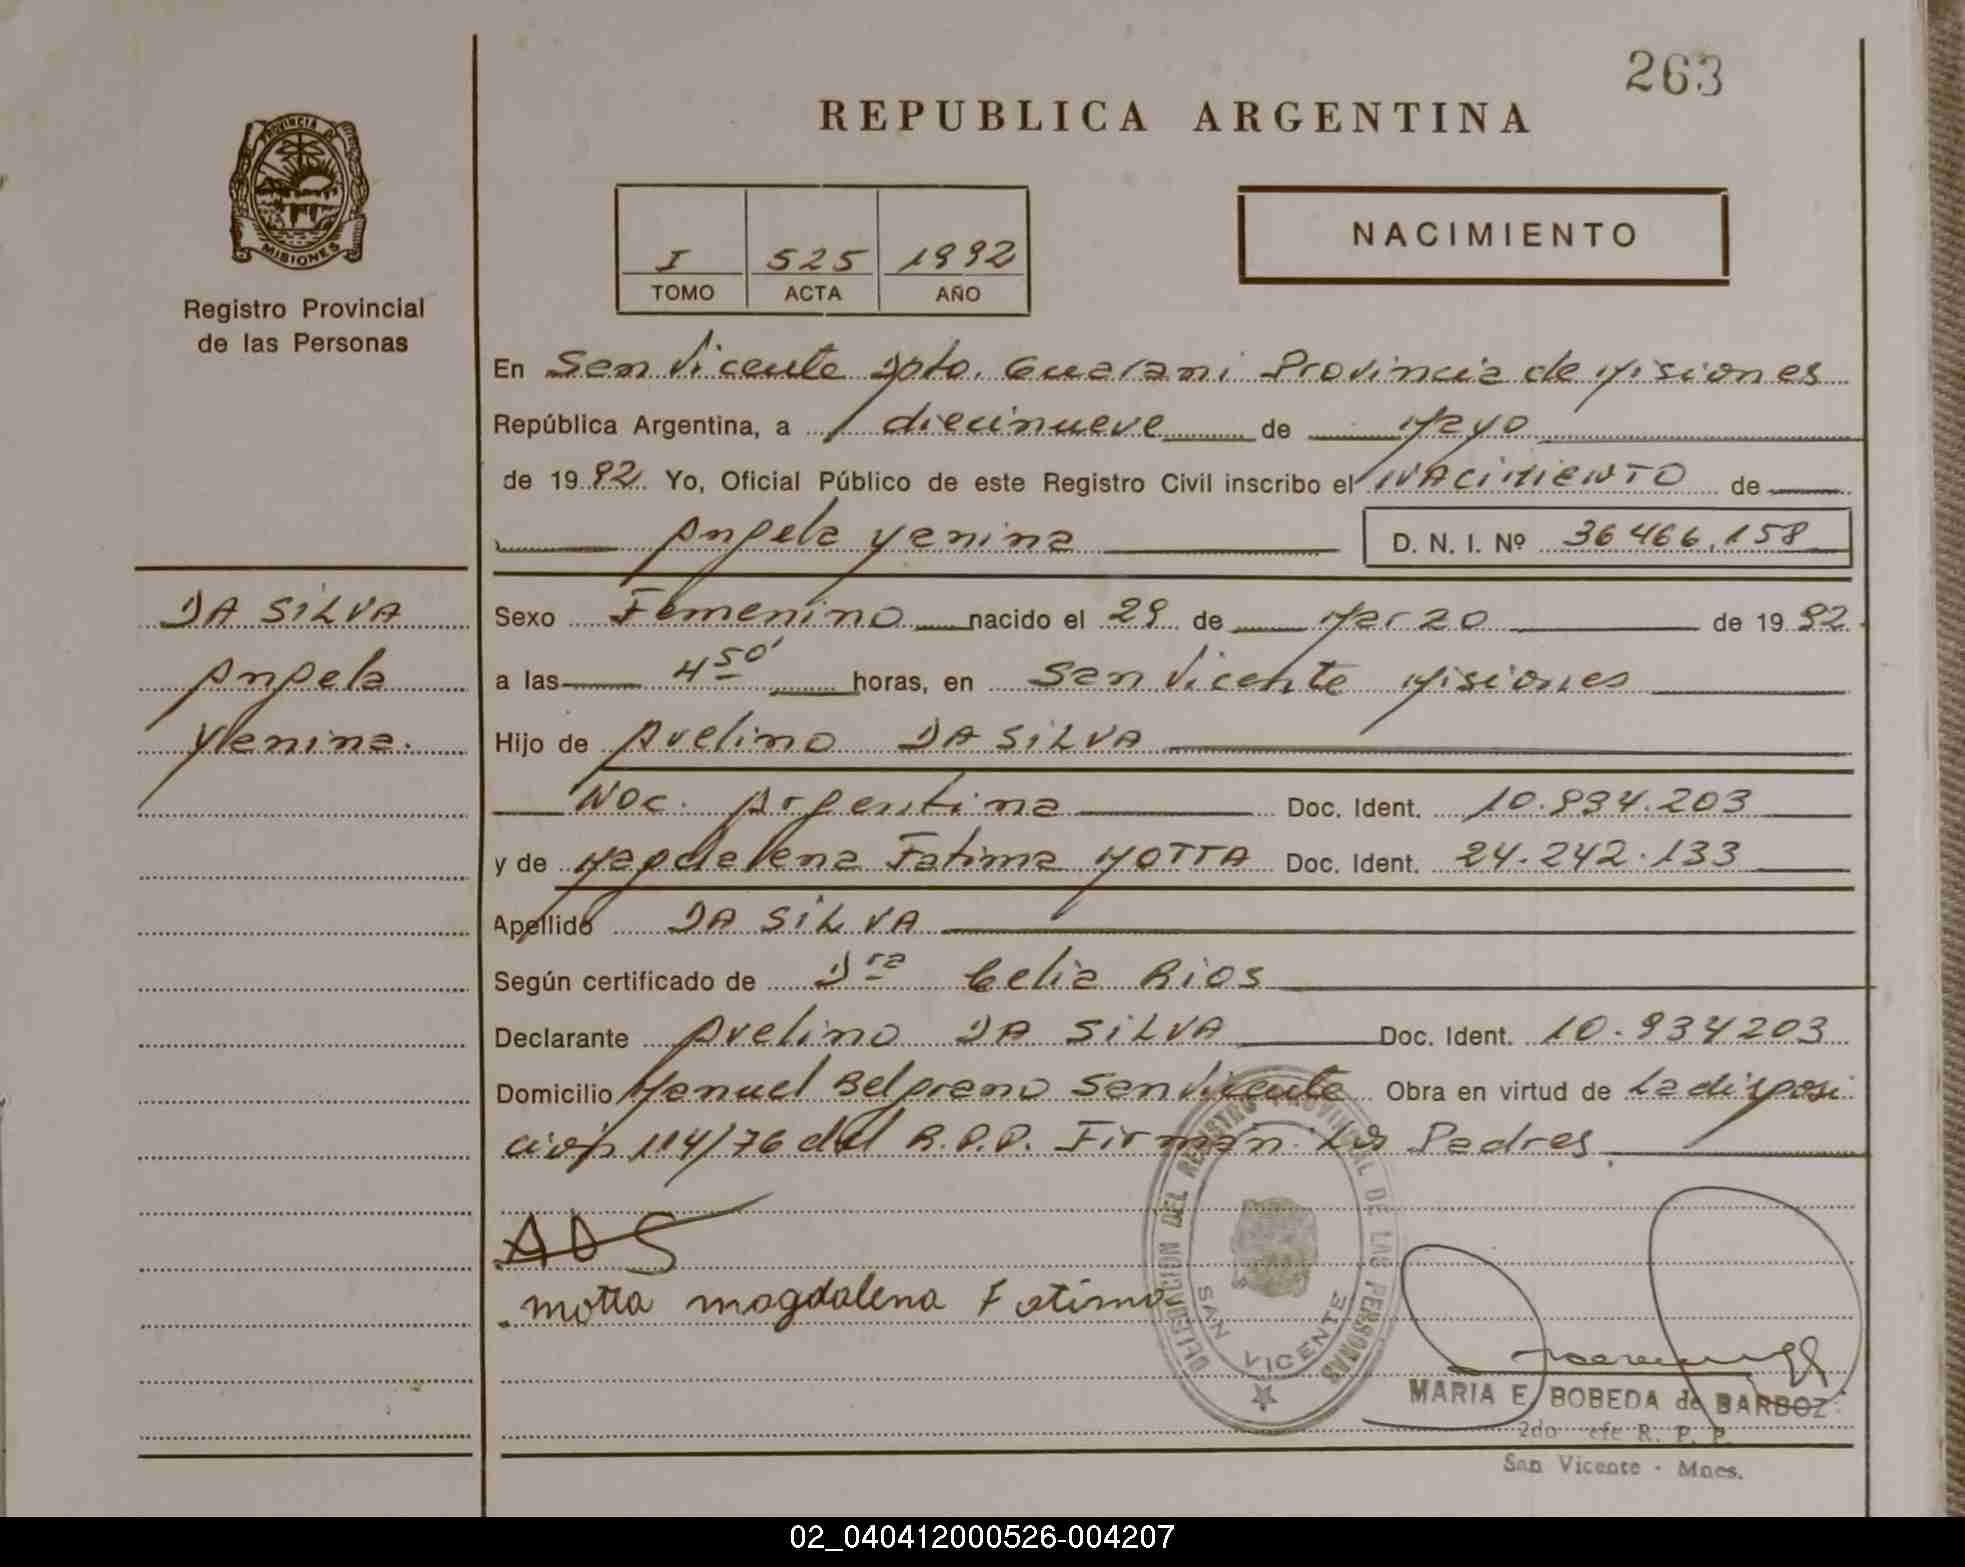 263
REPUBLICA ARGENTINA
PROVINCIA DE
MISIONES
Registro Provincial
de las Personas
I 525 1992
TOMO ACTA AÑO
NACIMIENTO
En San Vicente Dpto. Guarani Provincia de Misiones
República Argentina, a diecinueve de Mayo
de 1992. Yo, Oficial Público de este Registro Civil inscribo el NACIMIENTO de
Angela Yanina D. N. I. Nº 36466.158
DA SILVA
Angela
Yanina.
Sexo Femenino nacido el 29 de Marzo de 1992.
a las 4 50' horas, en San Vicente Misiones
Hijo de Avelino DA SILVA
Nac. Argentina Doc. Ident. 10.934.203
y de Magdalena Fatima MOTTA Doc. Ident. 24.242.133
Apellido DA SILVA
Según certificado de Dra Celia Rios
Declarante Avelino DA SILVA Doc. Ident. 10.934203
Domicilio Manuel Belgrano San Vicente Obra en virtud de La disposi
ción 114/76 del R.P.P. Firman Los Padres
ADS
motta magdalena Fatima
DELEGACION DEL REGISTRO PROVINCIAL DE LAS PERSONAS
SAN VICENTE
MARIA E. BOBEDA de BARBOZ
2do R. P. P.
San Vicente - Mnes.
02_040412000526-004207